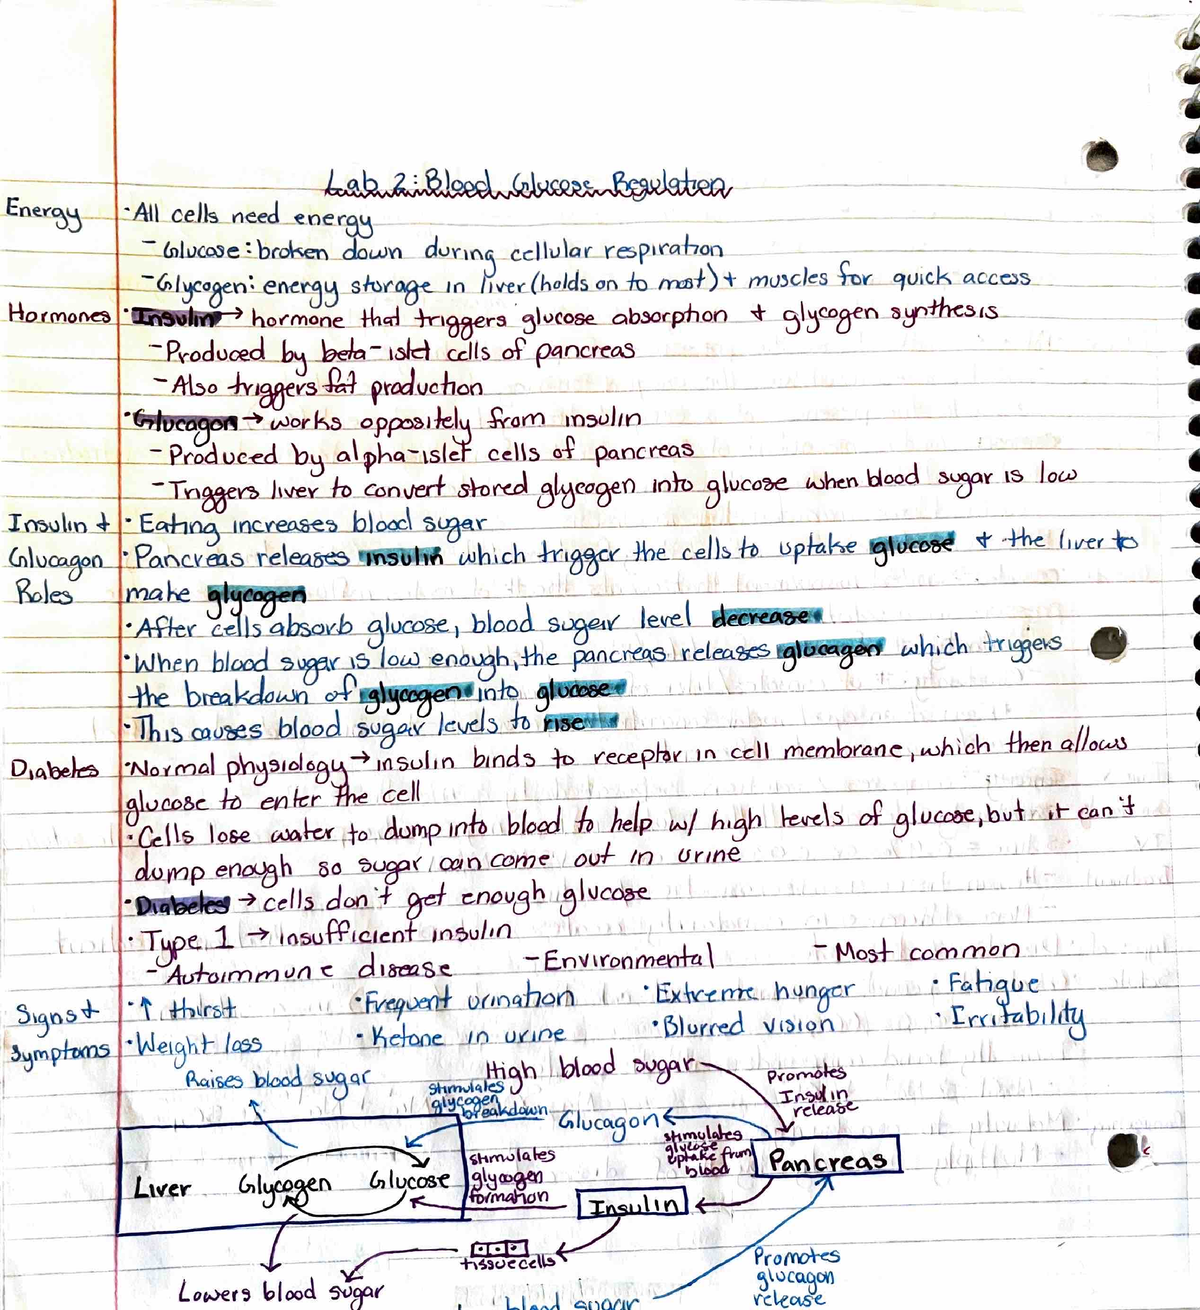 Lab 2: Blood Glucose Regulation
Energy
· All cells need energy
- Glucose: broken down during cellular respiration
- Glycogen: energy storage in liver (holds on to most) + muscles for quick access
Hormones
· Insulin → hormone that triggers glucose absorption + glycogen synthesis
- Produced by beta-islet cells of pancreas
- Also triggers fat production
· Glucagon → works oppositely from insulin
- Produced by alpha-islet cells of pancreas
- Triggers liver to convert stored glycogen into glucose when blood sugar is low
Insulin +
Glucagon
Roles
· Eating increases blood sugar
· Pancreas releases insulin which trigger the cells to uptake glucose + the liver to
make glycogen
· After cells absorb glucose, blood sugar level decrease
· When blood sugar is low enough, the pancreas releases glucagen which triggers
the breakdown of glycogen into glucose
· This causes blood sugar levels to rise
Diabetes
· Normal physiology → insulin binds to receptor in cell membrane, which then allows
glucose to enter the cell
· Cells lose water to dump into blood to help w/ high levels of glucose, but it can't
dump enough so sugar can come out in urine
· Diabetes → cells don't get enough glucose
· Type 1 → insufficient insulin
- Autoimmune disease - Environmental - Most common
Signs +
Symptoms
· ↑ thirst · Frequent urination · Extreme hunger · Fatigue
· Weight loss · Ketone in urine · Blurred vision · Irritability
High blood sugar
Raises blood sugar
Promotes
Insulin
release
stimulates
glycogen
breakdown
Glucagon
stimulates
glucose
uptake from
blood
Pancreas
Liver Glycogen Glucose
stimulates
glycogen
formation
Insulin
tissue cells
Lowers blood sugar
Promotes
glucagon
release
blood sugar